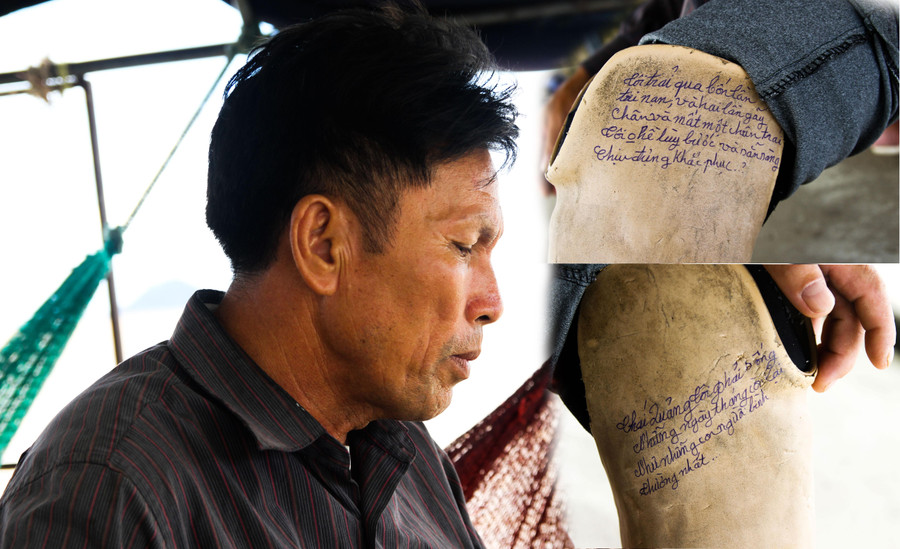 Tôi trải qua bốn lần
tai nạn, và hai lần gãy
chân và mất một chân trái
Tôi lùy bước và sẵn sàng
chịu đựng khắc phục..?
tôi phải sống
Những ngày tháng còn lại
Như những con người bình
thường nhất..